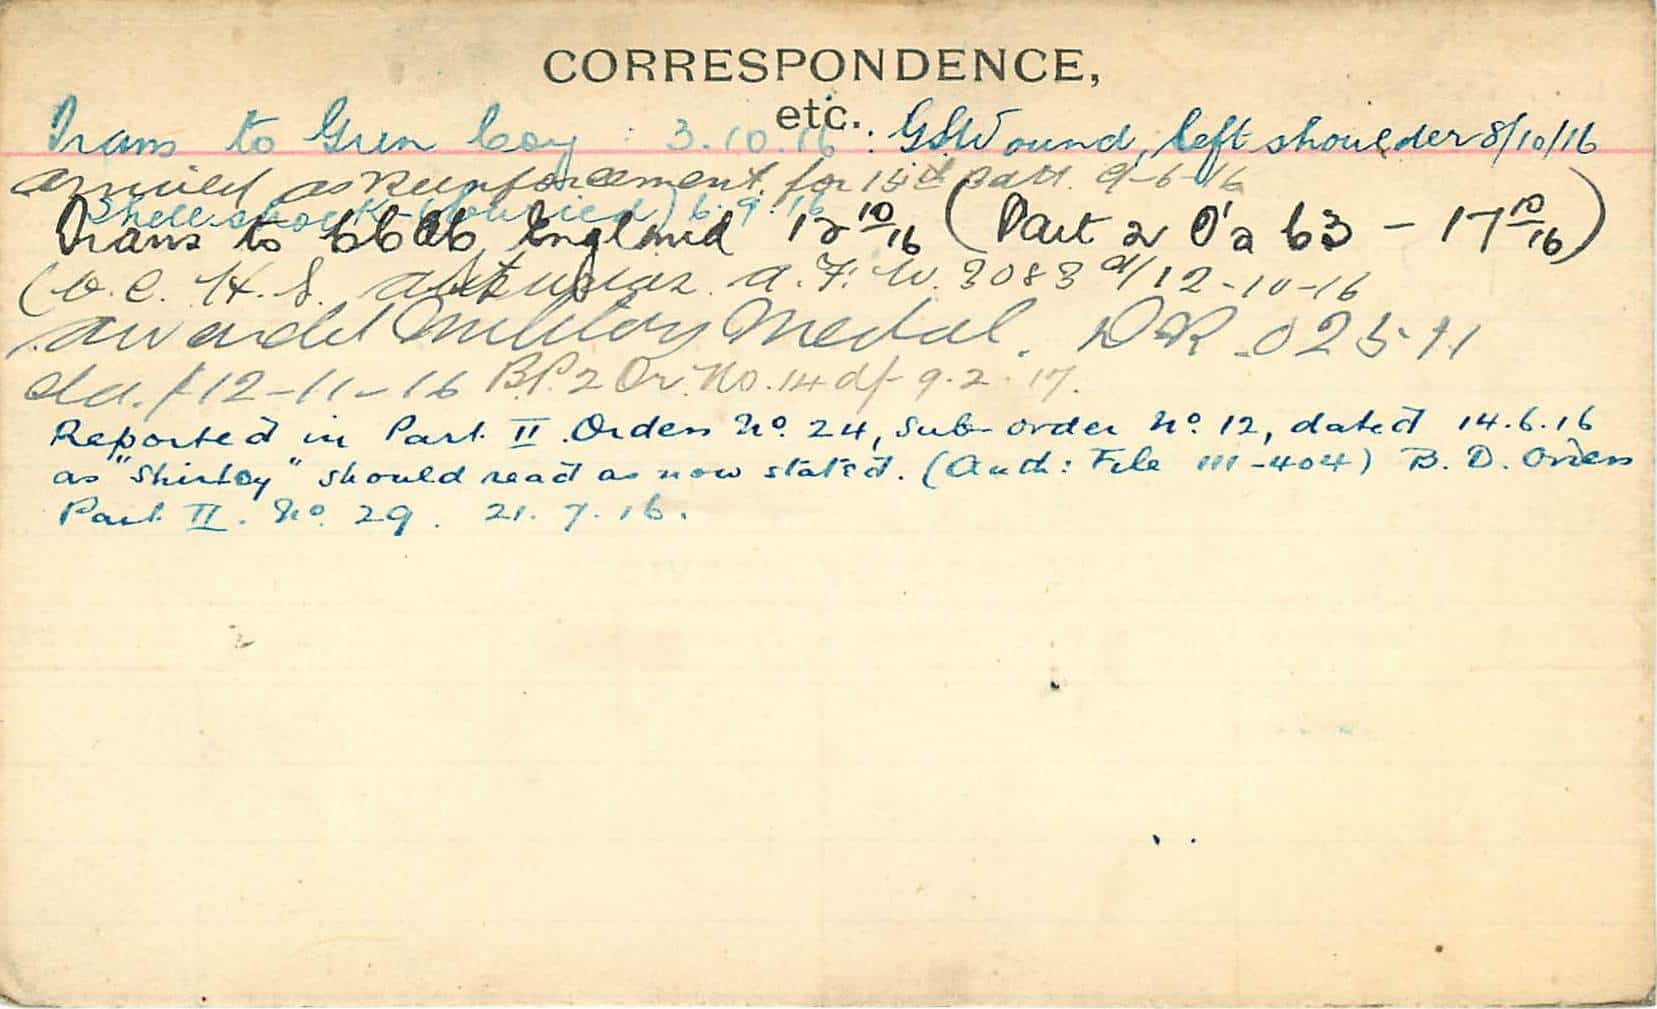 CORRESPONDENCE,
etc.
Trans to Gun Coy 3.10.16. GSWound, left shoulder 8/10/16
arrived as Reinforcement for 15th Batt. 9-6-16
Shell shock - (buried) 6.9.16
Trans to England 12 10/16 (Part 2 O's 63 - 17 10/16)
(O.C. H.S. Asturias A.F. W. 3083 d/12-10-16
awarded Military Medal. DR.
dd. /12-11-16 B.P.2 Or. No. 14 df 9.2.17.
Reported in Part II Orders No. 24, Sub-order No. 12, dated 14.6.16
as "Shirley" should read as now stated. (Auth: File 111-404) B. D. Orders
Part II. No. 29. 21.7.16.